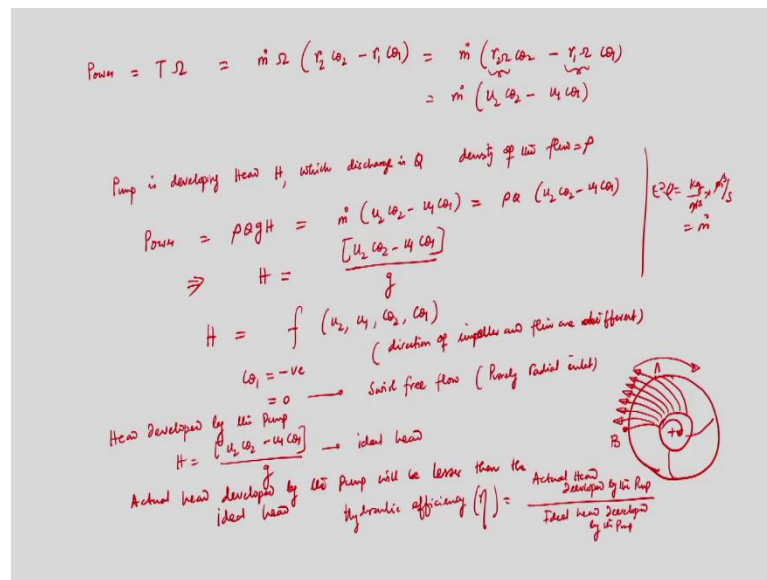 Power = T Ω = ṁ Ω (r₂ cθ₂ − r₁ cθ₁) = ṁ (r₂Ω cθ₂ − r₁Ω cθ₁)
= ṁ (u₂ cθ₂ − u₁ cθ₁)
Pump is developing Head H, which discharge is Q density of the flow = ρ
Power = ρQgH = ṁ (u₂ cθ₂ − u₁ cθ₁) = ρQ (u₂ cθ₂ − u₁ cθ₁)
ρQ = kg/m³ × m³/s
= ṁ
⇒ H = [u₂ cθ₂ − u₁ cθ₁] / g
H = f (u₂, u₁, cθ₂, cθ₁)
cθ₁ = −ve (direction of impeller and flow are different)
= 0 → Swirl free flow (Purely radial inlet)
Head developed by the Pump
H = [u₂ cθ₂ − u₁ cθ₁] / g → ideal head
Actual head developed by the Pump will be lesser than the
ideal head
Hydraulic efficiency (η) = Actual Head developed by the Pump / Ideal head developed by the Pump
A
B